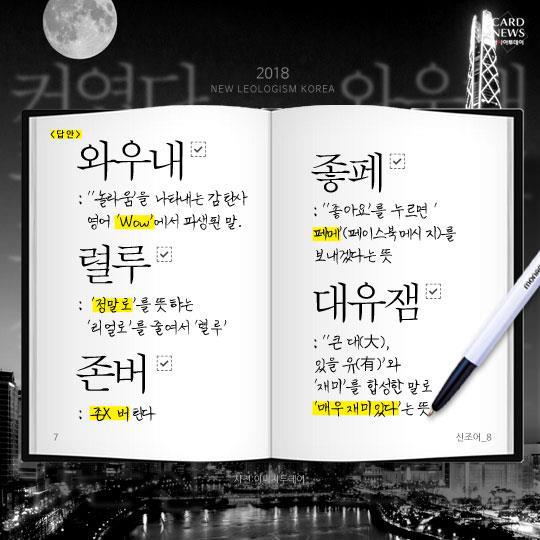 CARD
NEWS
아시아투데이
2018
NEW LEOLOGISM KOREA
<답안>
와우내
: "놀라움'을 나타내는 감탄사
영어 'Wow'에서 파생된 말.
렬루
: '정말로'를 뜻하는
'리얼로'를 줄여서 '렬루'
존버
: 존X 버틴다
7
좋페
: "좋아요'를 누르면 '
페메'(페이스북 메시 지)를
보내겠다는 뜻
대유잼
: "큰 대(大),
있을 유(有)'와
'재미'를 합성한 말로
'매우 재미있다'는 뜻
신조어_8
사진:이미지투데이